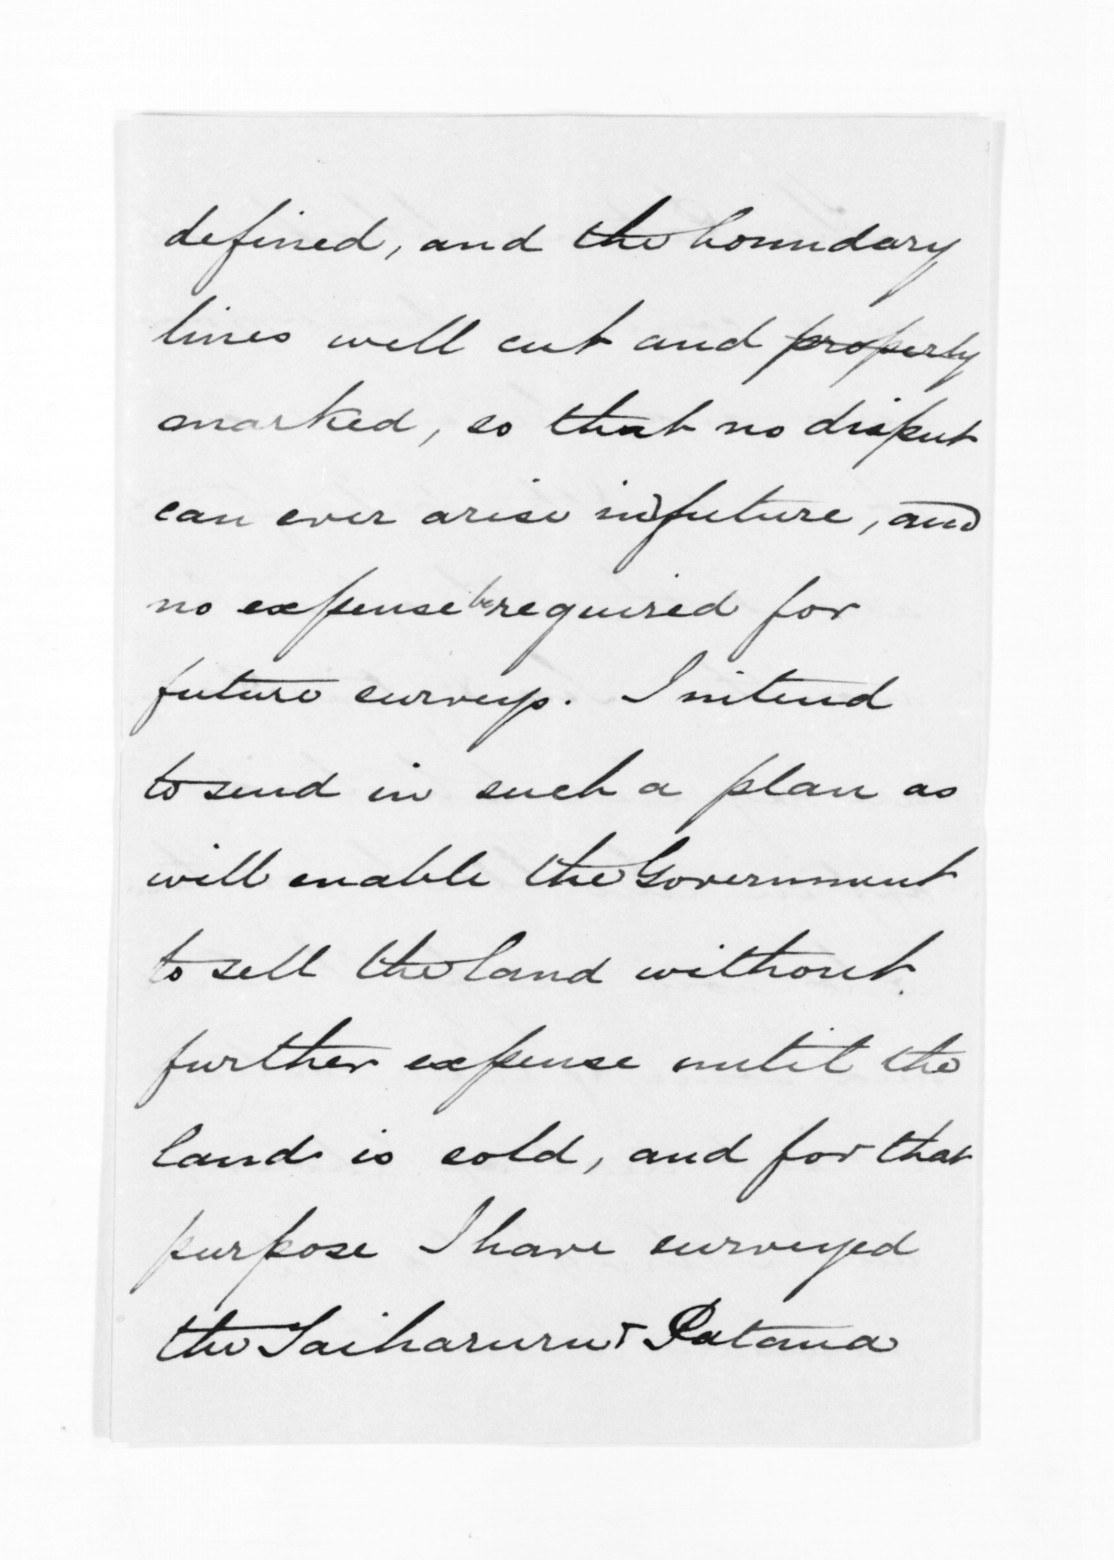 defined, and the boundary
lines well cut and properly
marked, so that no disput
can ever arise in future, and
no expense be required for
future surveys. I intend
to send in such a plan as
will enable the Government
to sell the land without
further expense until the
land is sold, and for that
purpose I have surveyed
the Taiharuru & Pataua